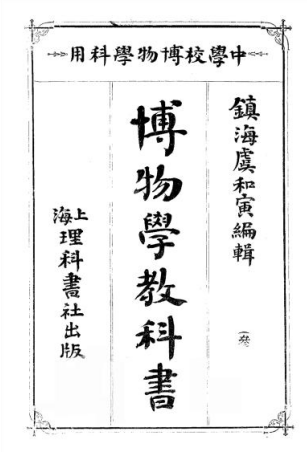 中學校博物學科用
鎮海虞和寅編輯
博物學教科書
上海理科書社出版